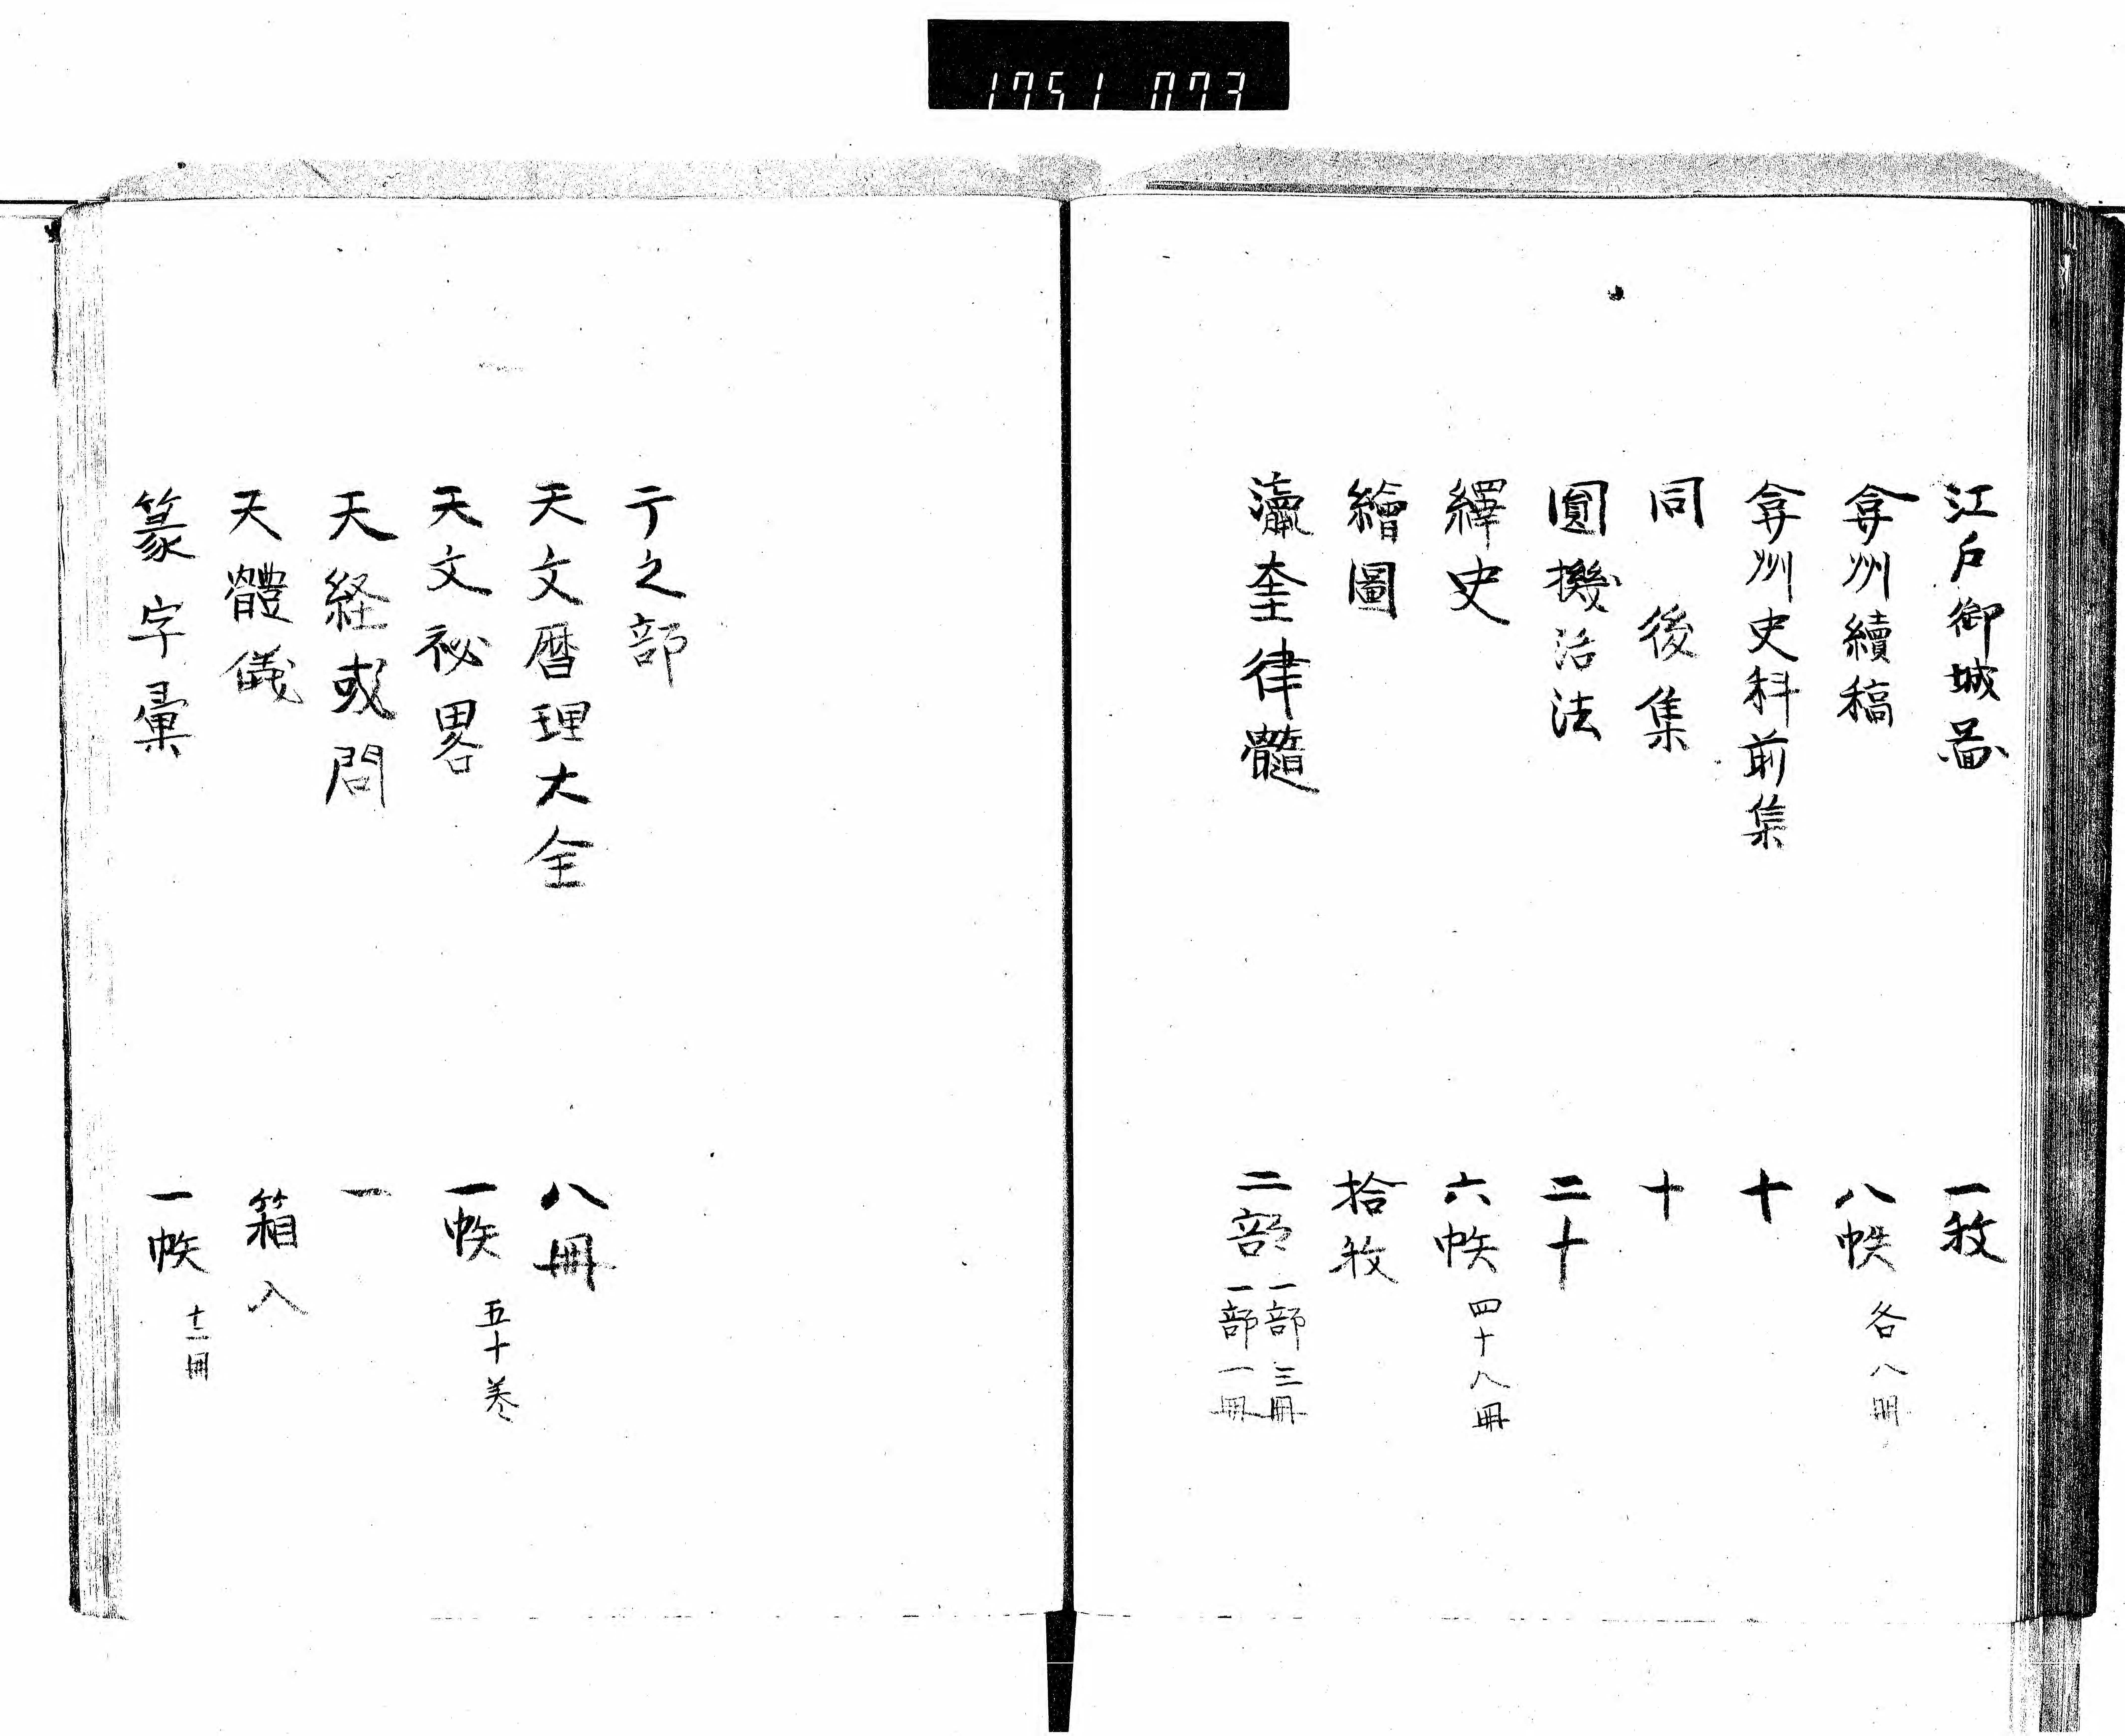 1751 073
江戸御城啚 一枚
弇州續稿 八帙 各八册
弇州史料前集 十
同 後集 十
圓機活法 二十
繹史 六帙 四十八冊
繪圖 拾枚
瀛奎律髓 二部 一部三冊 一部一冊
テ之部
天文暦理大全 八冊
天文祕畧 一帙 五十巻
天経或問 一
天體儀 箱入
篆字彙 一帙 十二冊